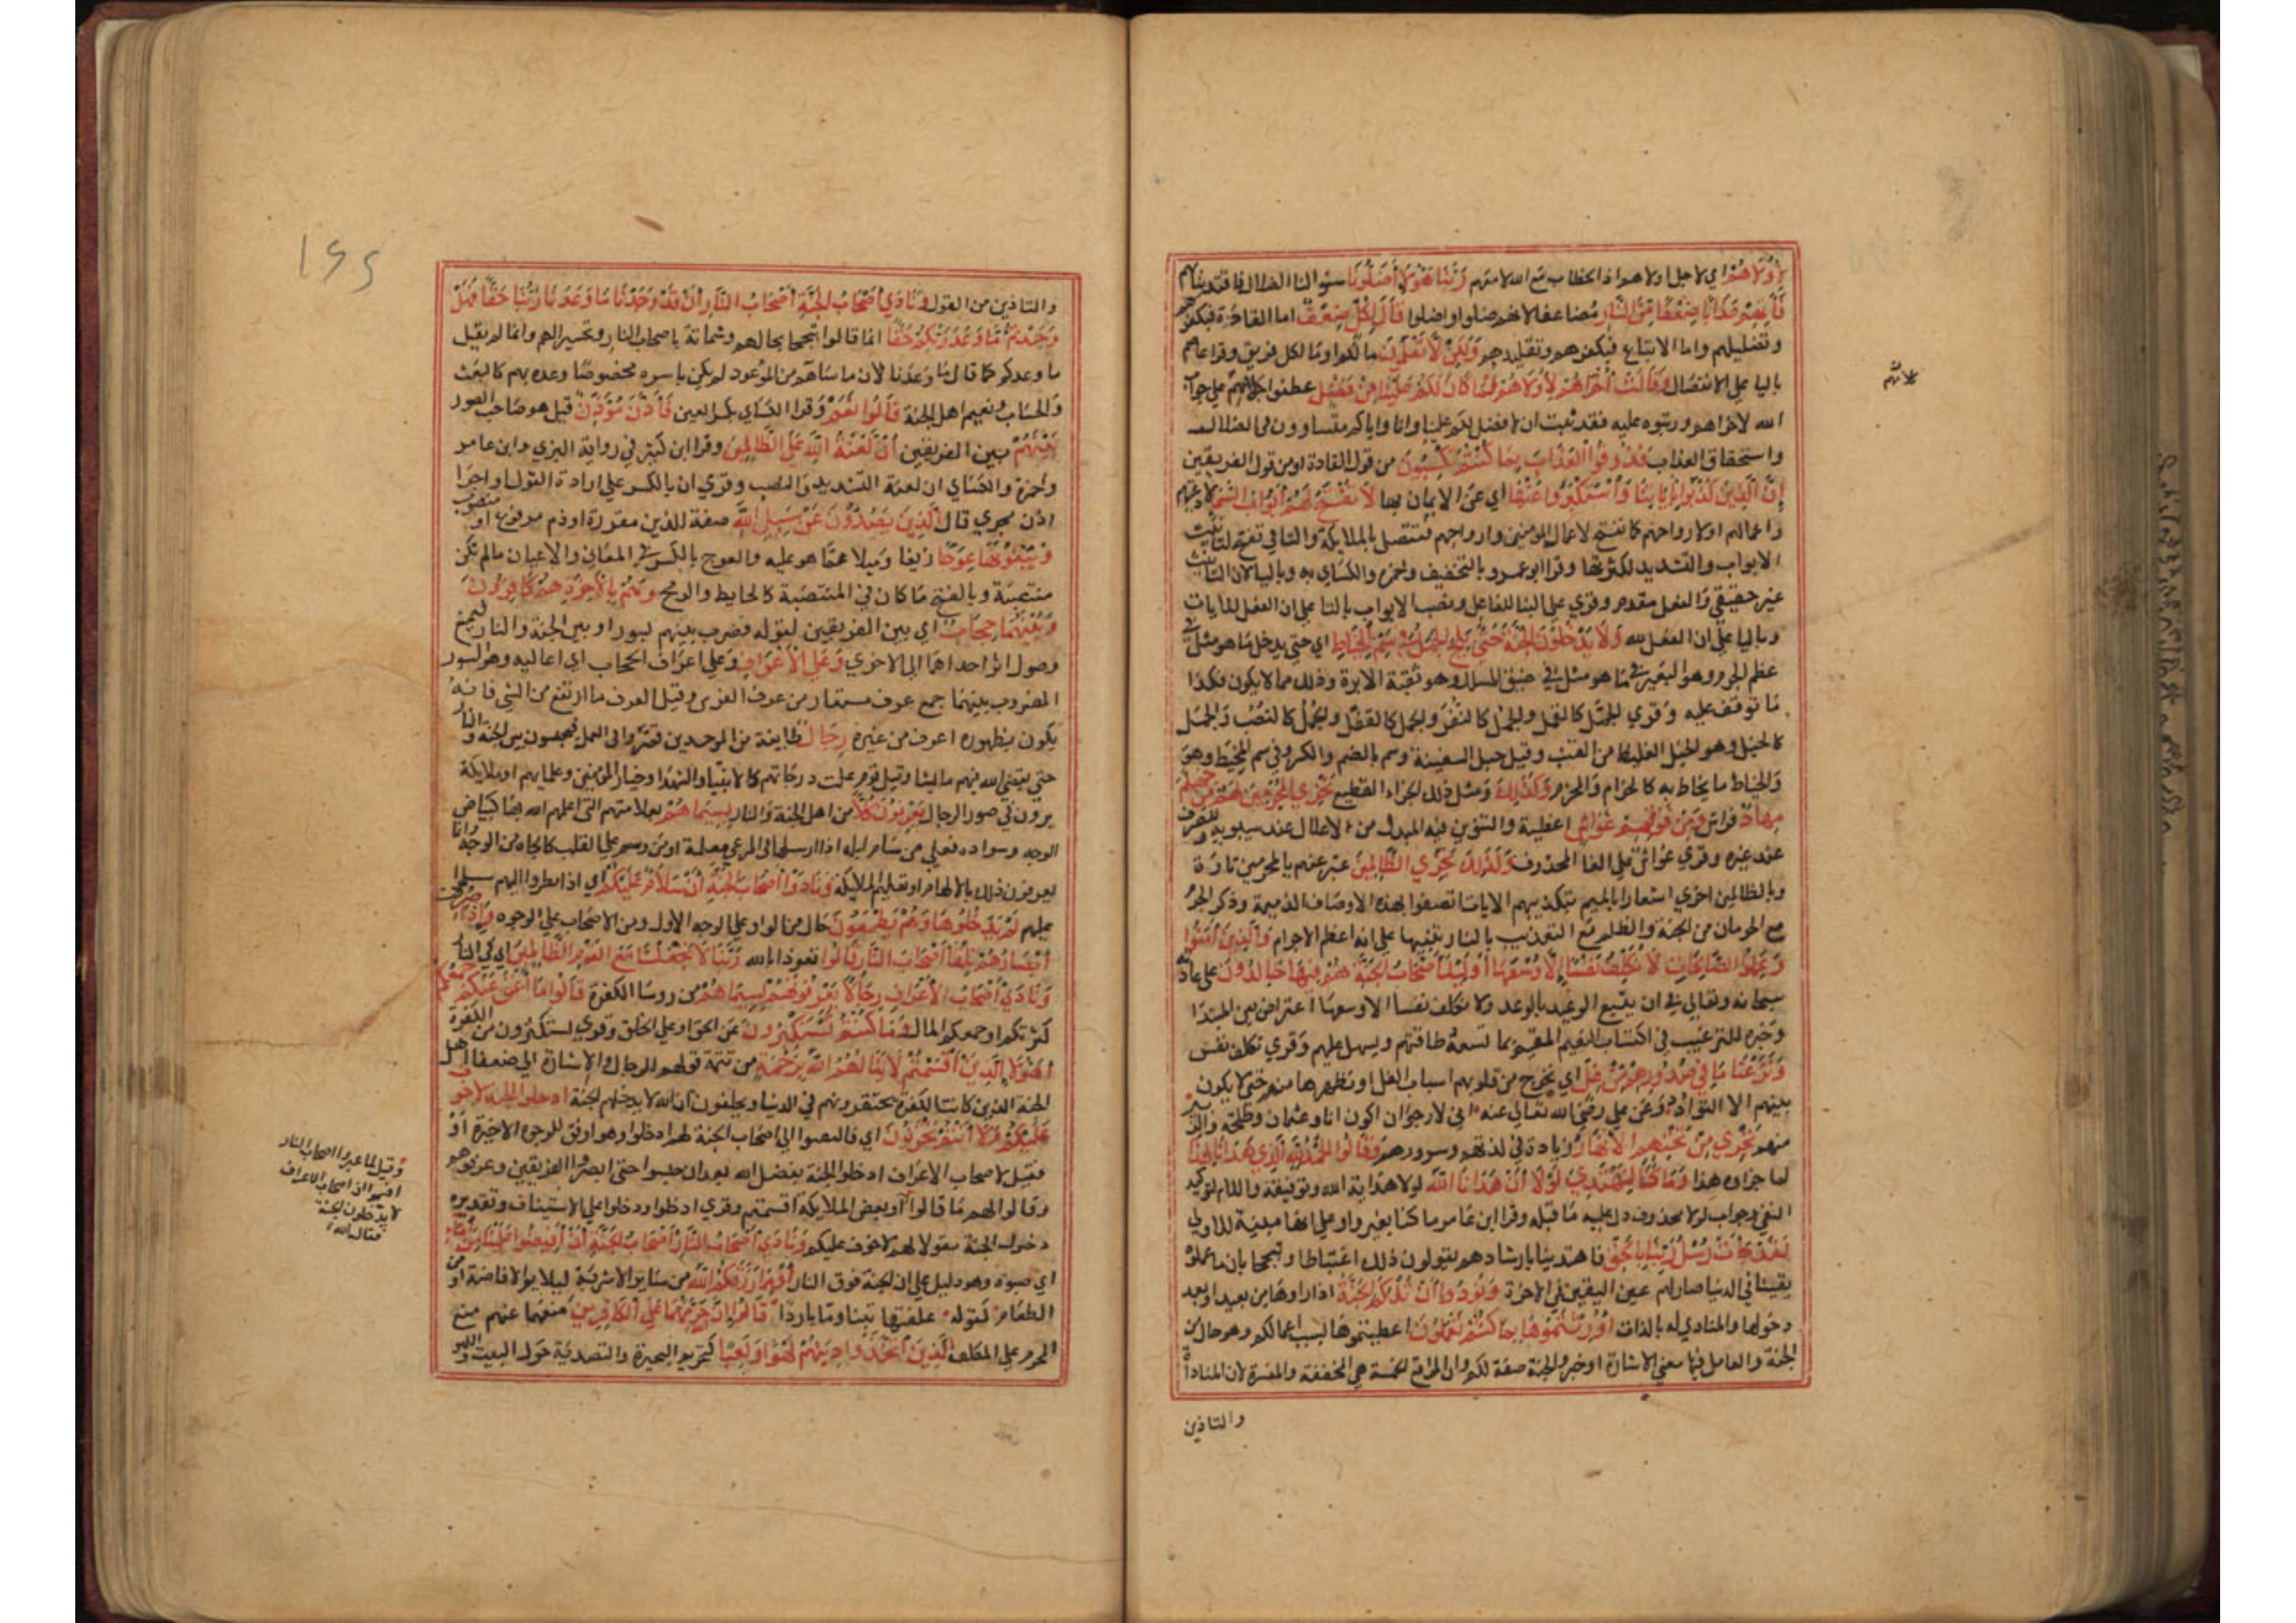 لِأُولَاهُمْ اي لاجل اولاهم اذ الخطاب مع الله لا معهم رَبَّنَا هَؤُلَاءِ أَضَلُّونَا سنوا لنا الضلال فاقتدينا بهم
فَآتِهِمْ عَذَابًا ضِعْفًا مِنَ النَّارِ مضاعفا لانهم ضلوا واضلوا قَالَ لِكُلٍّ ضِعْفٌ اما القادة فبكفرهم
وتضليلهم واما الاتباع فبكفرهم وتقليدهم وَلَكِنْ لَا تَعْلَمُونَ ما لكم او ما لكل فريق وقرا عاصم
باليا على الانفصال وَقَالَتْ أُولَاهُمْ لِأُخْرَاهُمْ فَمَا كَانَ لَكُمْ عَلَيْنَا مِنْ فَضْلٍ عطفوا كلامهم على جواب
الله لاخراهم ورتبوه عليه فقد ثبت ان لا فضل لكم علينا وانا واياكم متساوون في الضلال
واستحقاق العذاب فَذُوقُوا الْعَذَابَ بِمَا كُنْتُمْ تَكْسِبُونَ من قول القادة او من قول الفريقين
إِنَّ الَّذِينَ كَذَّبُوا بِآيَاتِنَا وَاسْتَكْبَرُوا عَنْهَا اي عن الايمان بها لَا تُفَتَّحُ لَهُمْ أَبْوَابُ السَّمَاءِ لادعيتهم
واعمالهم او لارواحهم كما تفتح لاعمال المومنين وارواحهم لتتصل بالملايكة والتا في تفتح لتانيث
الابواب والتشديد لكثرتها وقرا ابو عمرو بالتخفيف وحمزة والكساي به وباليا لان التانيث
غير حقيقي والفعل مقدم وقري على البنا للفاعل ونصب الابواب بالتا على ان الفعل للايات
وباليا على ان الفعل لله وَلَا يَدْخُلُونَ الْجَنَّةَ حَتَّى يَلِجَ الْجَمَلُ فِي سَمِّ الْخِيَاطِ اي حتى يدخل ما هو مثل في
عظم الجرم وهو البعير فيما هو مثل في ضيق المسلك وهو ثقبة الابرة وذلك مما لا يكون فكذا
ما توقف عليه وقري الجمل كالقمل والجمل كالنغر والجمل كالقفل والجمل كالنصب والجمل
كالحبل وهو الحبل الغليظ من القنب وقيل حبل السفينة وسم بالضم والكسر وفي سم المخيط وهو
والخياط ما يخاط به كالحزام والمحزم وَكَذَلِكَ ومثل ذلك الجزاء الفظيع نَجْزِي الْمُجْرِمِينَ لَهُمْ مِنْ جَهَنَّمَ
مِهَادٌ فراش وَمِنْ فَوْقِهِمْ غَوَاشٍ اغطية والتنوين فيه للبدل من الاعلال عند سيبويه وللصرف
عند غيره وقري غواش على الغا المحذوف وَكَذَلِكَ نَجْزِي الظَّالِمِينَ عبر عنهم بالمجرمين تارة
وبالظالمين اخرى اشعارا بانهم بتكذيبهم الايات اتصفوا بهذه الاوصاف الذميمة وذكر الجرم
مع الحرمان من الجنة والظلم مع التعذيب بالنار تنبيها على انه اعظم الاجرام وَالَّذِينَ آمَنُوا
وَعَمِلُوا الصَّالِحَاتِ لَا نُكَلِّفُ نَفْسًا إِلَّا وُسْعَهَا أُولَئِكَ أَصْحَابُ الْجَنَّةِ هُمْ فِيهَا خَالِدُونَ على عادة
سبحانه وتعالى في ان يتبع الوعيد بالوعد ولا نكلف نفسا الا وسعها اعتراض بين المبتدا
وخبره للترغيب في اكتساب النعيم المقيم بما تسعه طاقتهم ويسهل عليهم وقري تكلف نفس
وَنَزَعْنَا مَا فِي صُدُورِهِمْ مِنْ غِلٍّ اي نخرج من قلوبهم اسباب الغل او نطهرها منه حتى لا يكون
بينهم الا التوادد وعن علي رضي الله تعالى عنه اني لارجو ان اكون انا وعثمان وطلحة والزبير
منهم تَجْرِي مِنْ تَحْتِهِمُ الْأَنْهَارُ زيادة في لذتهم وسرورهم وَقَالُوا الْحَمْدُ لِلَّهِ الَّذِي هَدَانَا لِهَذَا
لما جزاوه هذا وَمَا كُنَّا لِنَهْتَدِيَ لَوْلَا أَنْ هَدَانَا اللَّهُ لولا هداية الله وتوفيقه واللام لتوكيد
النفي وجواب لولا محذوف دل عليه ما قبله وقرا ابن عامر ما كنا بغير واو على انها مبينة للاولى
لَقَدْ جَاءَتْ رُسُلُ رَبِّنَا بِالْحَقِّ فاهتدينا بارشادهم يقولون ذلك اغتباطا وتبجحا بان ما علموه
يقينا في الدنيا صار لهم عين اليقين في الاخرة وَنُودُوا أَنْ تِلْكُمُ الْجَنَّةُ اذا راوها من بعيد او بعد
دخولها والمنادى له بالذات أُورِثْتُمُوهَا بِمَا كُنْتُمْ تَعْمَلُونَ اعطيتموها بسبب اعمالكم وهو حال من
الجنة والعامل فيها معنى الاشارة او خبر والجنة صفة تلكم وان في المواقع الخمسة هي المخففة او المفسرة لان المناداة
والتاذين
لانهم
والتاذين من القول وَنَادَى أَصْحَابُ الْجَنَّةِ أَصْحَابَ النَّارِ أَنْ قَدْ وَجَدْنَا مَا وَعَدَنَا رَبُّنَا حَقًّا فَهَلْ
وَجَدْتُمْ مَا وَعَدَ رَبُّكُمْ حَقًّا انما قالوا تبجحا بحالهم وشماتة باصحاب النار وتحسيرا لهم وانما لم يقل
ما وعدكم كما قال ما وعدنا لان ما ساهم من الموعود لم يكن باسره مخصوصا وعده بهم كالبعث
والحساب ونعيم اهل الجنة قَالُوا نَعَمْ وقرا الكساي بكسر العين فَأَذَّنَ مُؤَذِّنٌ قيل هو صاحب الصور
بَيْنَهُمْ بين الفريقين أَنْ لَعْنَةُ اللَّهِ عَلَى الظَّالِمِينَ وقرا ابن كثير في رواية البزي وابن عامر
وحمزة والكساي ان لعنة بالتشديد والنصب وقري ان بالكسر على ارادة القول او اجرا
اذن مجرى قال الَّذِينَ يَصُدُّونَ عَنْ سَبِيلِ اللَّهِ صفة للظالمين مقررة او ذم مرفوع او منصوب
وَيَبْغُونَهَا عِوَجًا زيغا وميلا عما هو عليه والعوج بالكسر في المعاني والاعيان ما لم تكن
منتصبة وبالفتح ما كان في المنتصبة كالحايط والرمح وَهُمْ بِالْآخِرَةِ هُمْ كَافِرُونَ
وَبَيْنَهُمَا حِجَابٌ اي بين الفريقين لقوله فضرب بينهم بسور او بين الجنة والنار ليمنع
وصول اثر احداهما الى الاخرى وَعَلَى الْأَعْرَافِ وعلى اعراف الحجاب اي اعاليه وهو السور
المضروب بينهما جمع عرف مستعار من عرف الفرس وقيل العرف ما ارتفع من الشي فانه
يكون بظهوره اعرف من غيره رِجَالٌ طايفة من الموحدين قصروا في العمل فيحبسون بين الجنة والنار
حتى يقضي الله فيهم ما يشا وقيل قوم علت درجاتهم كالانبيا والشهدا وخيار المومنين وعلمايهم او ملايكة
يرون في صور الرجال يَعْرِفُونَ كُلًّا من اهل الجنة والنار بِسِيمَاهُمْ بعلامتهم التي اعلمهم الله بها كبياض
الوجه وسواده فعلى من سام ابله اذا ارسلها في المرعى معلمة او من وسم على القلب كالجاه من الوجه وانما
يعرفون ذلك بالالهام او تعليم الملايكة وَنَادَوْا أَصْحَابَ الْجَنَّةِ أَنْ سَلَامٌ عَلَيْكُمْ اي اذا نظروا اليهم سلموا
عليهم لَمْ يَدْخُلُوهَا وَهُمْ يَطْمَعُونَ حال من الواو على الوجه الاول ومن الاصحاب على الوجوه وَإِذَا صُرِفَتْ
أَبْصَارُهُمْ تِلْقَاءَ أَصْحَابِ النَّارِ قَالُوا تعوذا بالله رَبَّنَا لَا تَجْعَلْنَا مَعَ الْقَوْمِ الظَّالِمِينَ اي في النار
وَنَادَى أَصْحَابُ الْأَعْرَافِ رِجَالًا يَعْرِفُونَهُمْ بِسِيمَاهُمْ من روسا الكفرة قَالُوا مَا أَغْنَى عَنْكُمْ جَمْعُكُمْ
كثرتكم او جمعكم المال وَمَا كُنْتُمْ تَسْتَكْبِرُونَ عن الحق او على الخلق وقري تستكثرون من الكثرة
أَهَؤُلَاءِ الَّذِينَ أَقْسَمْتُمْ لَا يَنَالُهُمُ اللَّهُ بِرَحْمَةٍ من تتمة قولهم للرجال والاشارة الى ضعفا اهل
الجنة الذين كانت الكفرة يحتقرونهم في الدنيا ويحلفون ان الله لا يدخلهم الجنة ادخلوا الجنة لا خوف
عَلَيْكُمْ وَلَا أَنْتُمْ تَحْزَنُونَ اي فالتفتوا الى اصحاب الجنة لهم ادخلوا وهو اوفق للوجوه الاخيرة او
فقيل لاصحاب الاعراف ادخلوا الجنة بفضل الله بعد ان حبسوا حتى ابصروا الفريقين وعرفوهم
وقالوا لهم ما قالوا او بعض الملايكة اقسمتم وقري ادخلوا ودخلوا على الاستيناف وتقديره
دخلوا الجنة مقولا لهم لا خوف عليكم وَنَادَى أَصْحَابُ النَّارِ أَصْحَابَ الْجَنَّةِ أَنْ أَفِيضُوا عَلَيْنَا مِنَ الْمَاءِ
اي صبوه وهو دليل على ان الجنة فوق النار أَوْ مِمَّا رَزَقَكُمُ اللَّهُ من ساير الاشربة ليلايم الافاضة او من
الطعام لقوله علفتها تبنا وما باردا قَالُوا إِنَّ اللَّهَ حَرَّمَهُمَا عَلَى الْكَافِرِينَ منعهما عنهم منع
المحرم على المكلف الَّذِينَ اتَّخَذُوا دِينَهُمْ لَهْوًا وَلَعِبًا كتحريم البحيرة والتصدية حول البيت واللهو
وقيل لما عيروا اصحاب النار
اقسموا ان اصحاب الاعراف
لا يدخلون الجنة
فقال الله